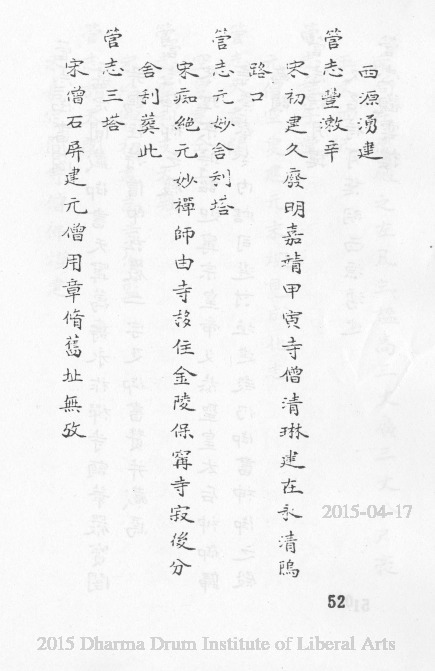 西源湧建
管志豐漱亭
宋初建久廢明嘉靖甲寅寺僧清琳建在永清塢
路口
管志元妙舍利塔
宋痴絕元妙禪師由寺移住金陵保寧寺寂後分
舍利葬此
管志三塔
宋僧石屏建元僧用章脩舊址無攷
52
2015-04-17
2015 Dharma Drum Institute of Liberal Arts